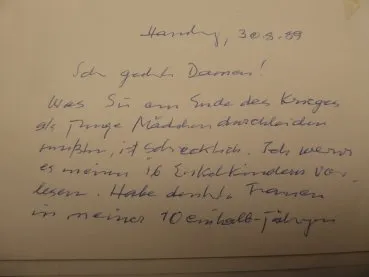 30.8.99
Sehr geehrte Damen!
Was Sie am Ende des Krieges
als junge Mädchen durchleiden
mußten, ist schrecklich. Ich werde
es meinen 16 Enkelkindern vor-
lesen. Habe Frauen
in meiner 10 einhalb-jährigen